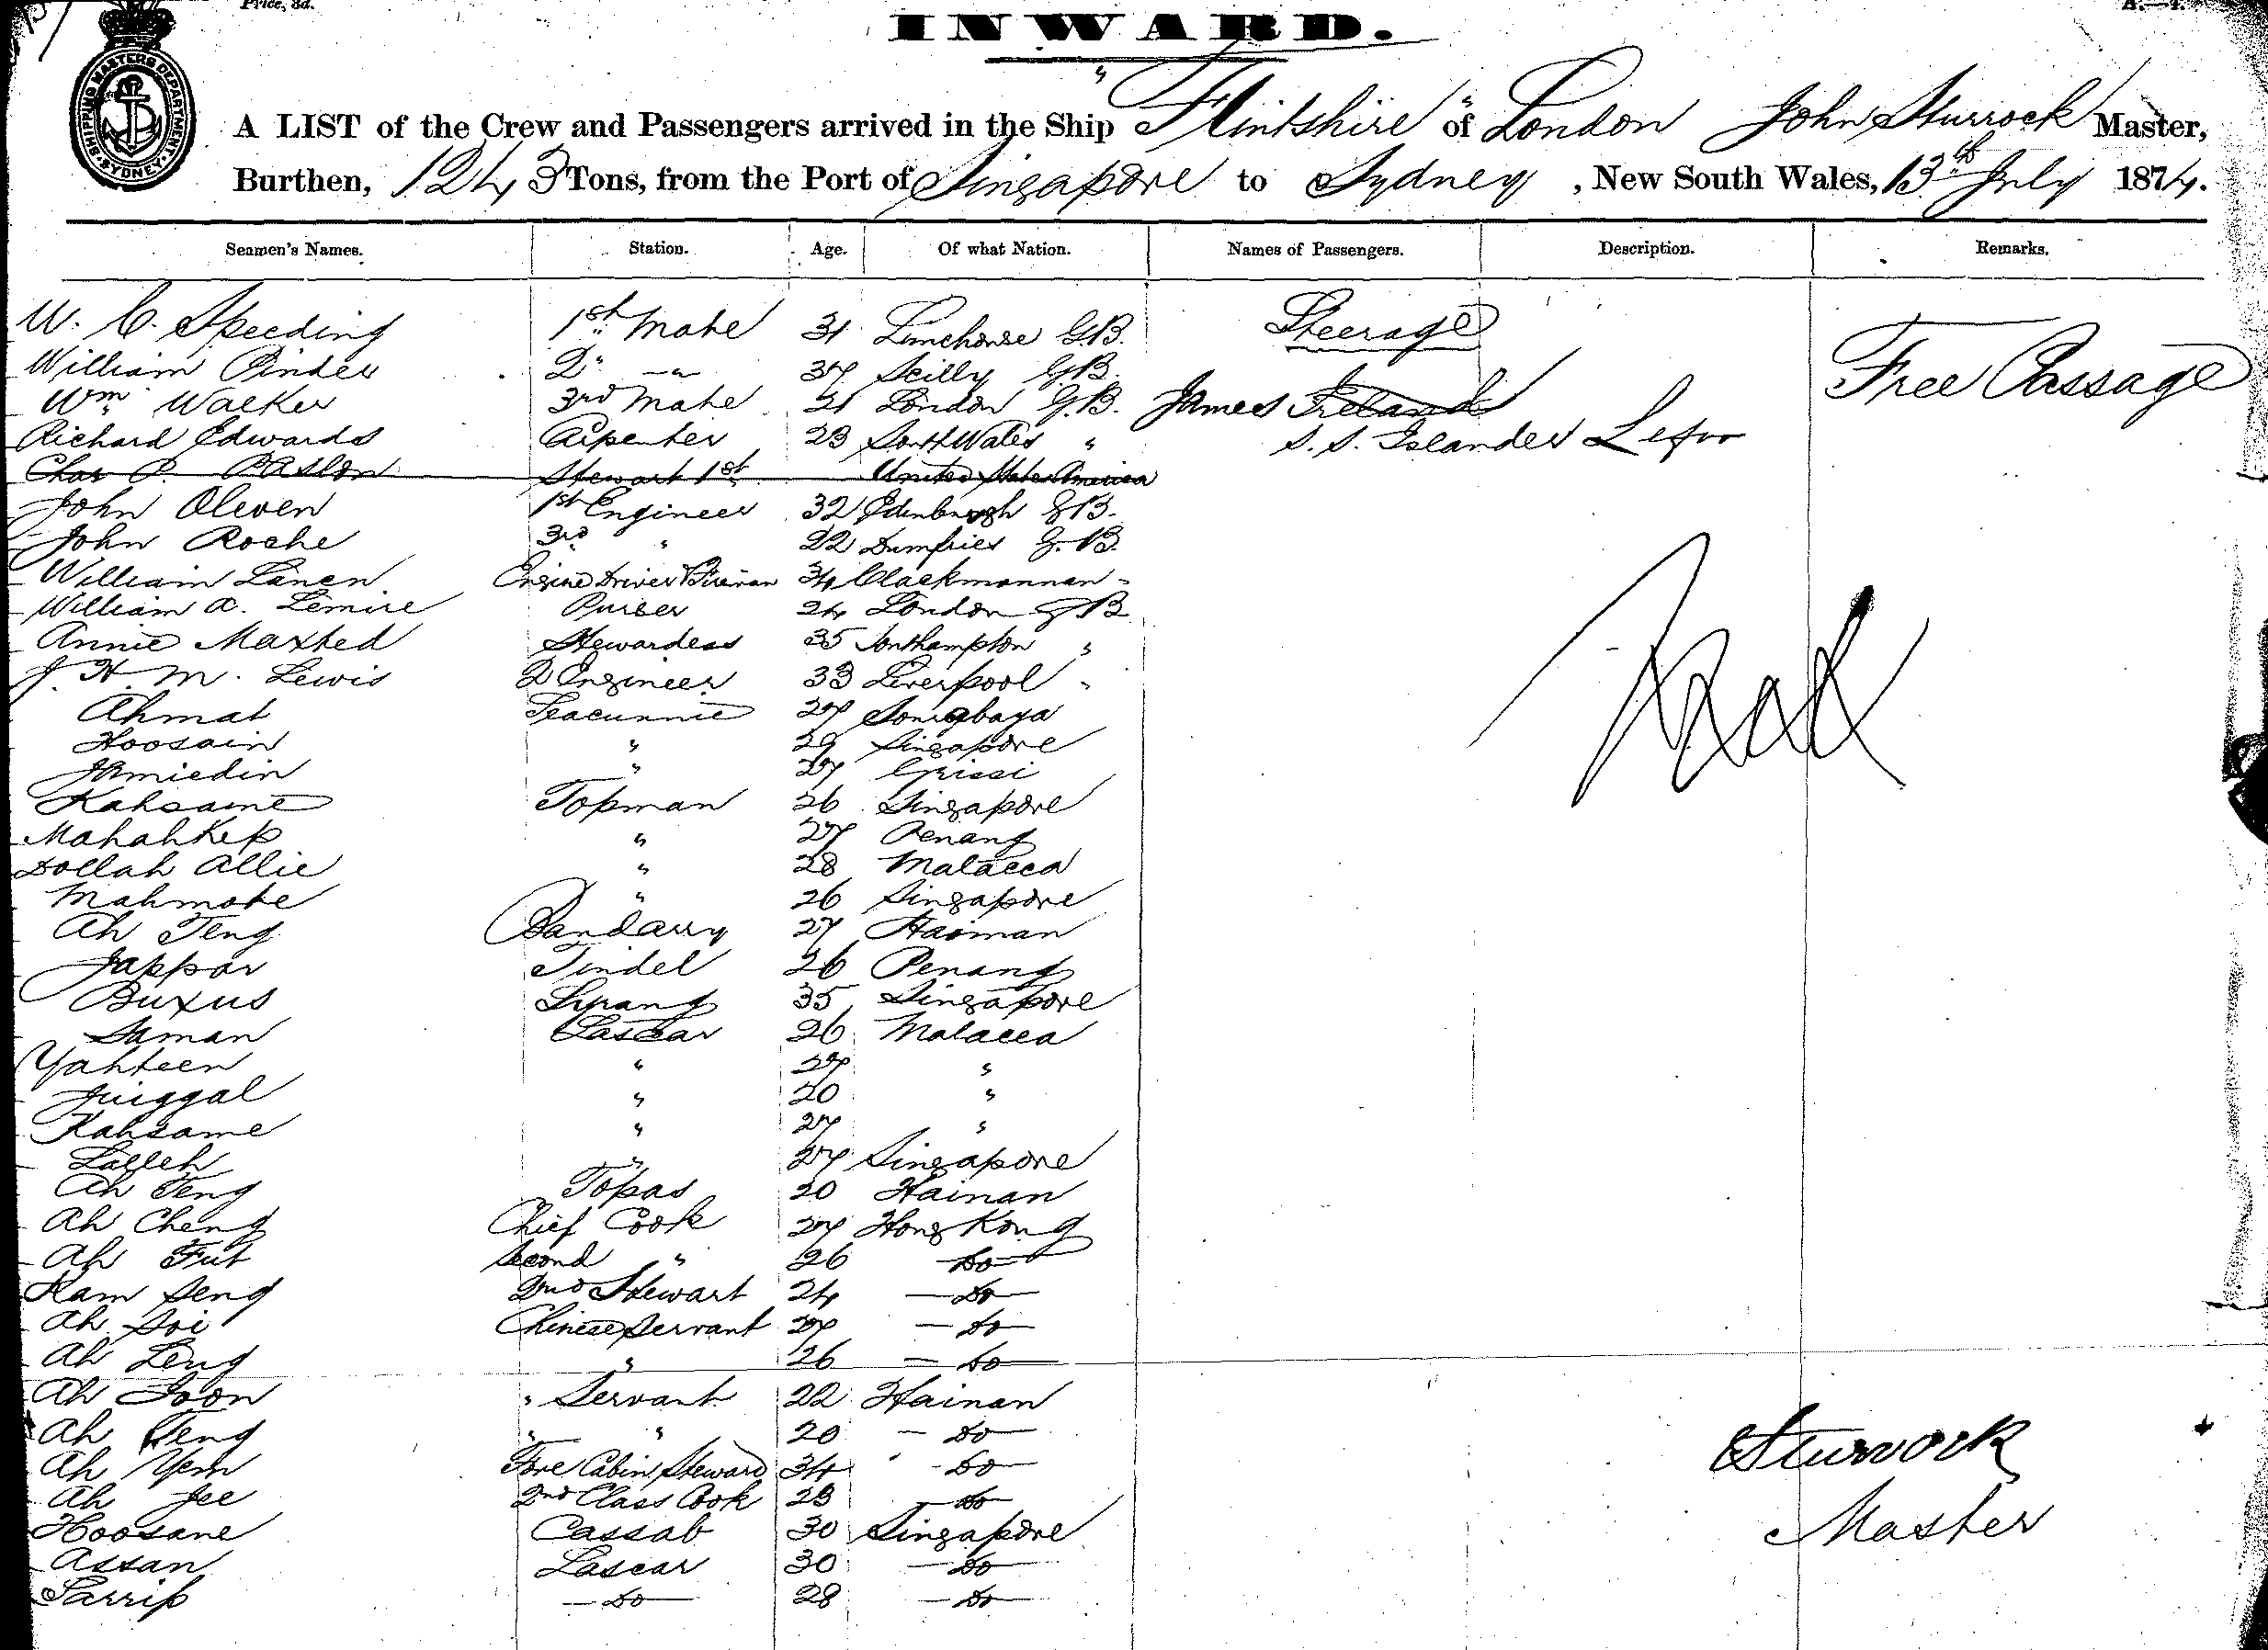 Price, 3d.
INWARD.
SHIPPING MASTERS DEPARTMENT. SYDNEY.
A LIST of the Crew and Passengers arrived in the Ship "Flintshire" of London John Sturrock Master,
Burthen, 1243 Tons, from the Port of Singapore to Sydney, New South Wales, 13th July 1874.
Seamen's Names. Station. Age. Of what Nation. Names of Passengers. Description. Remarks.
W. C. Speeding 1st Mate 31 Limehouse G.B. Steerage
William Pinder 2" " 37 Scilly G.B. Free Passage
Wm Walker 3rd Mate 21 London G.B. James Ireland
Richard Edwards Carpenter 23 South Wales " S. S. Islander
Chas P. Stewart 1st United States America
John Oliven 1st Engineer 32 Edinburgh G.B.
John Roche 3rd " 22 Dumfries G.B.
William Lanen Engine Driver & Fireman 34 Clackmannan "
William A. Lemire Purser 24 London G.B.
Annie Maxted Stewardess 35 Southampton "
J. H. M. Lewis 2 Engineer 33 Liverpool "
Ahmat Seacunnie 27 Sourabaya
Hoosain " 29 Singapore
Jamiedin " 27 Grissi
Kahsame Topman 26 Singapore
Mahahkep " 27 Penang
Dollah Allie " 28 Malacca
Mahmote " 26 Singapore
Ah Teng Bandarry 27 Hainan
Jappar Tindel 26 Penang
Buxus Syrang 35 Singapore
Saman Lascar 26 Malacca
Yahteen " 27 "
Juiggal " 20 "
Kahsame " 27 "
Salleh " 27 Singapore
Ah Teng Topas 20 Hainan
Ah Cheng Chief Cook 27 Hong Kong
Ah Fut Second " 26 Do
Kam Seng 2nd Stewart 24 Do
Ah Soi Chinese Servant 27 Do
Ah Leng " 26 Do
Ah Joon " Servant 22 Hainan
Ah Teng " " 20 Do
Ah Yem Fore Cabin Steward 34 " Do
Ah Jee 2nd Class Cook 23 Do
Hoosane Cassab 30 Singapore
Assan Lascar 30 Do
Sarrip Do 28 Do
Sturrock
Master